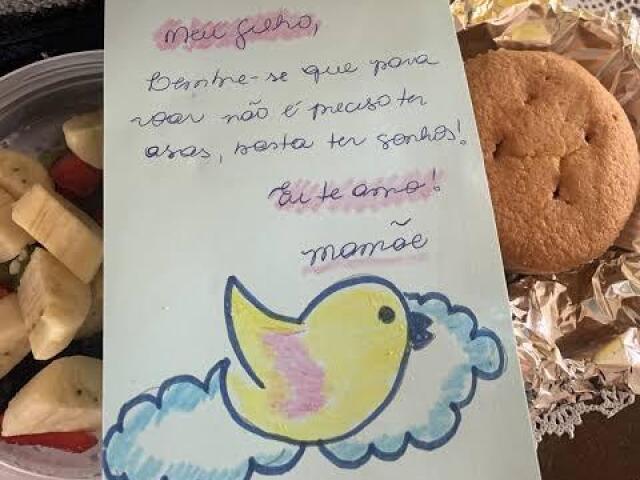 Meu filho,
Lembre-se que para
voar não é preciso ter
asas, basta ter sonhos!
Eu te amo!
mamãe